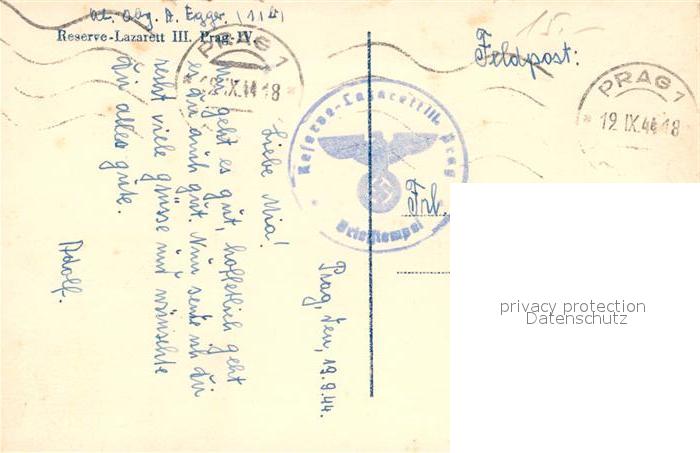 At. Obg. A. Egger. (114)
Reserve-Lazarett III. Prag-IV.
15.-
Feldpost:
PRAG 1
19.IX.44 18
PRAG 1
19.IX.44 18
Reserve-Lazarett III. Prag
Briefstempel
Frl.
Prag, den, 19.9.44.
Liebe Mia!
geht es gut, hoffetlich geht
es dir auch gut. Nun sende ich dir
recht viele grüsse und wünschte
dir alles gute.
Adolf.
privacy protection
Datenschutz